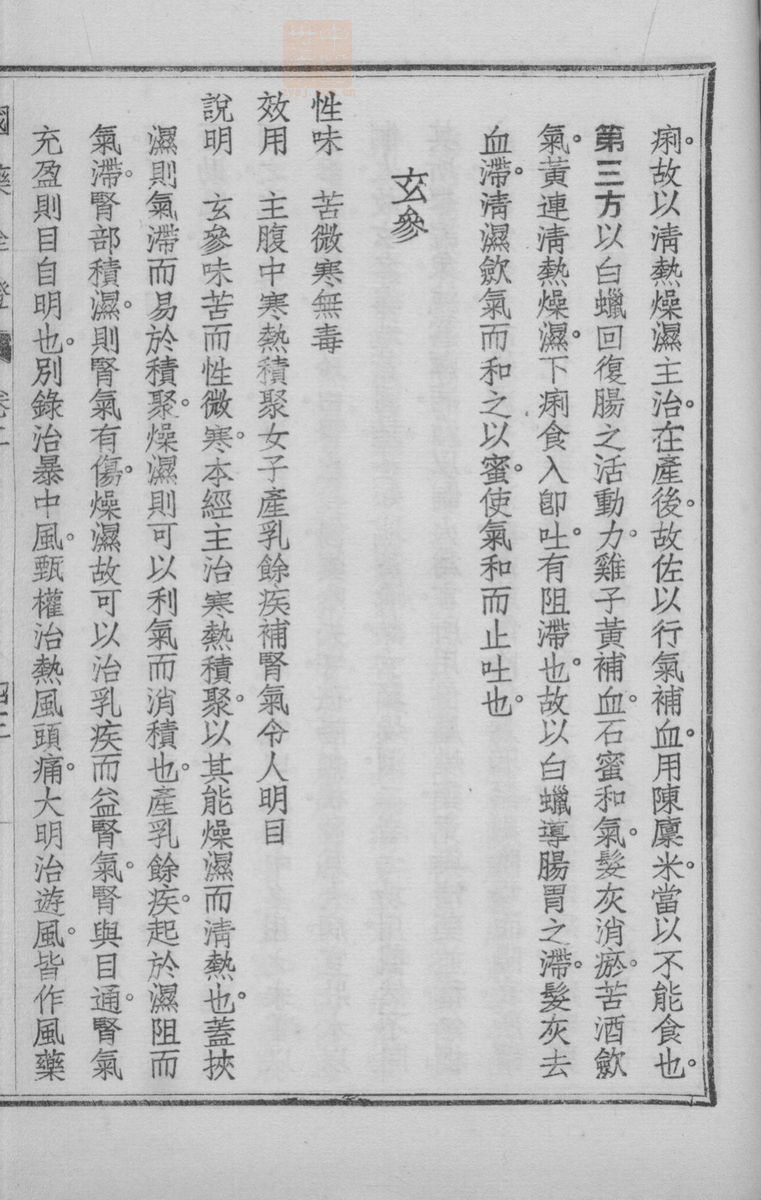 痢。故以淸熱燥濕主治。在產後。故佐以行氣補血。用陳廩米。當以不能食也。
第三方以白蠟回復腸之活動力。雞子黃補血。石蜜和氣。髮灰消瘀。苦酒歛
氣。黃連淸熱燥濕。下痢食入卽吐。有阻滯也。故以白蠟導腸胃之滯。髮灰去
血滯。淸濕歛氣而和之以蜜。使氣和而止吐也。
玄參
性味 苦微寒無毒
效用 主腹中寒熱積聚女子產乳餘疾補腎氣令人明目
說明 玄參味苦而性微寒。本經主治寒熱積聚。以其能燥濕而淸熱也。蓋挾
濕則氣滯而易於積聚。燥濕則可以利氣而消積也。產乳餘疾。起於濕阻而
氣滯。腎部積濕。則腎氣有傷。燥濕故可以治乳疾而益腎氣。腎與目通。腎氣
充盈則目自明也。別錄治暴中風。甄權治熱風頭痛。大明治遊風。皆作風藥
國藥詮證 卷二 四二